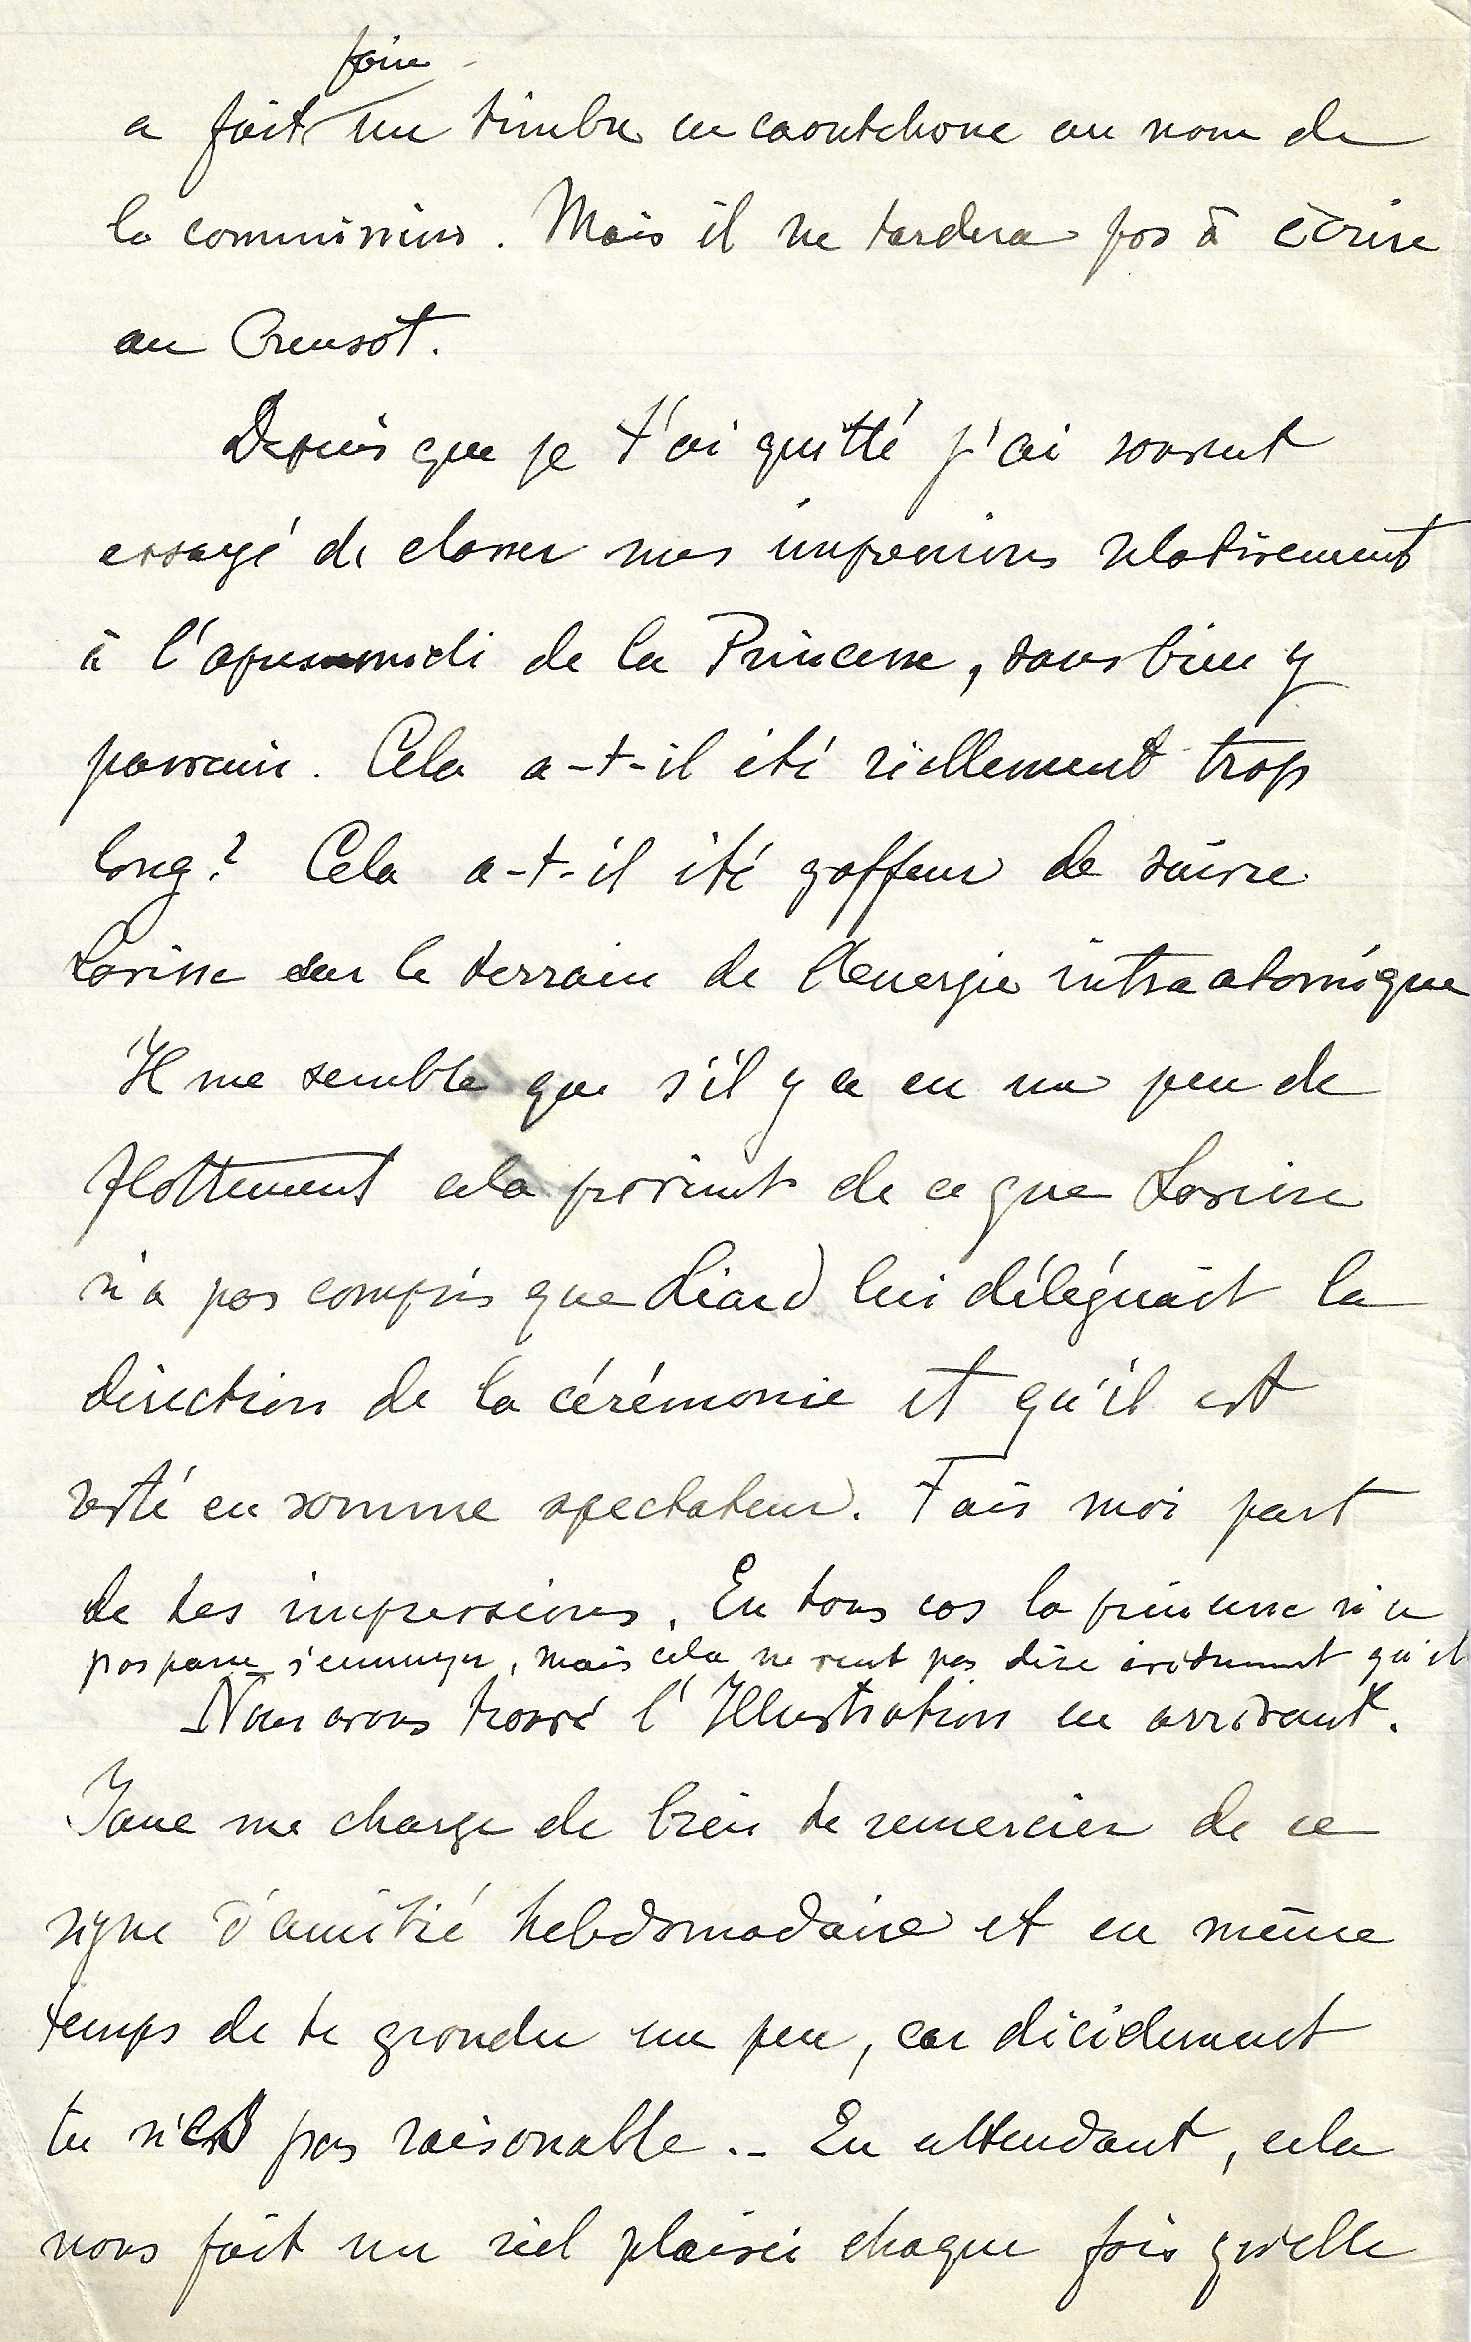 faire
a fait un timbre en caoutchouc au nom de
la commission. Mais il ne tardera pas à écrire
au Creusot.
Depuis que je t'ai quitté j'ai souvent
essayé de classer mes impressions relativement
à l'apres midi de la Princesse, sans bien y
parvenir. Cela a-t-il été réellement trop
long? Cela a-t-il été gaffeur de suivre
Lavisse sur le terrain de l'énergie intraatomique
Il me semble que s'il y a eu un peu de
flottement cela provient de ce que Lavisse
n'a pas compris que Liard lui déléguait la
direction de la cérémonie et qu'il est
resté en somme spectateur. Fais moi part
de tes impressions. En tous cas la princesse n'a
pas paru s'ennuyer, mais cela ne veut pas dire évidemment qu'il
Nous avons trouvé l'Illustration en arrivant.
Jane me charge de bien te remercier de ce
signe d'amitié hebdomadaire et en même
temps de te gronder un peu, car décidement
tu n'es pas raisonable. - En attendant, cela
nous fait un réel plaisir chaque fois qu'elle